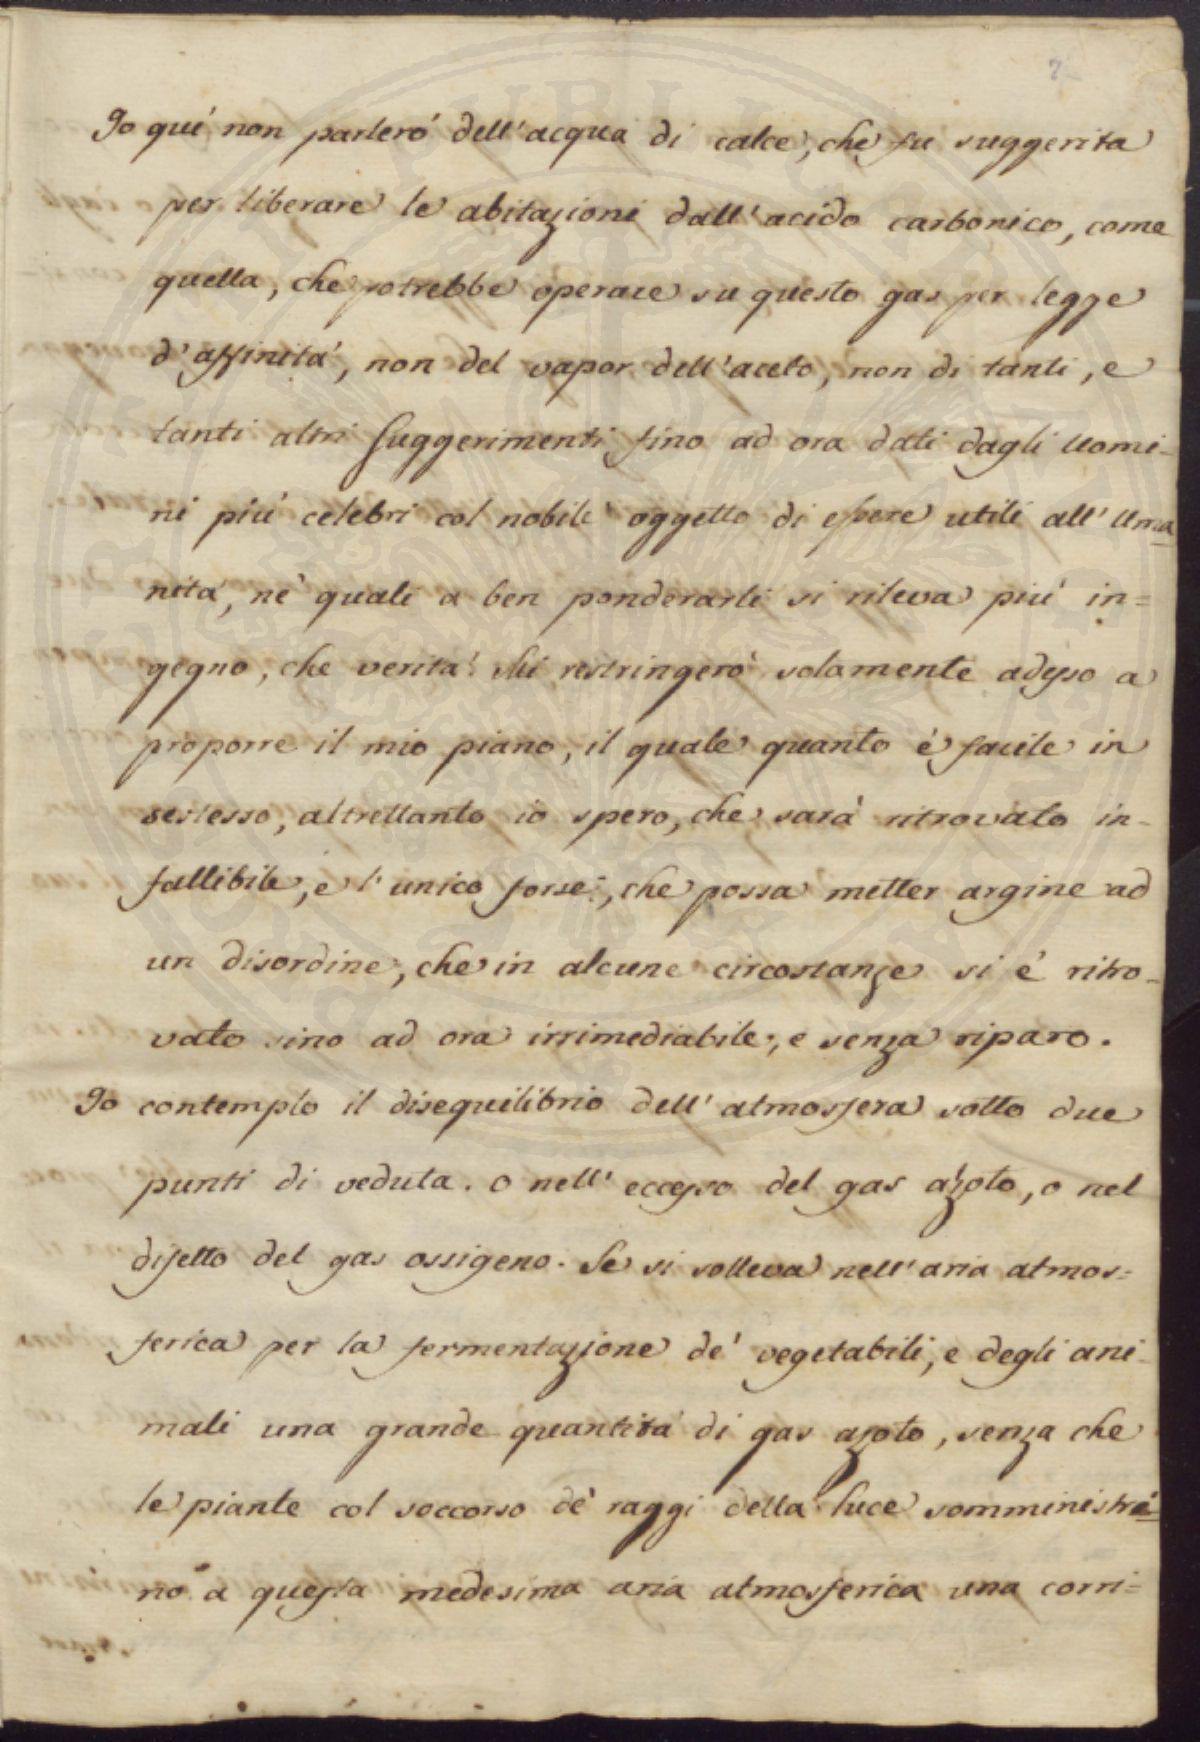 Io qui non parlerò dell'acqua di calce, che fu suggerita
per liberare le abitazioni dall'acido carbonico, come
quella, che potrebbe operare su questo gas per legge
d'affinità, non del vapor dell'aceto, non di tanti, e
tanti altri suggerimenti fino ad ora dati dagli Uomi-
ni più celebri col nobile oggetto di essere utili all'Uma
nità, nè quali a ben ponderarli si rileva più in=
gegno, che verità. Mi restringerò solamente adesso a
proporre il mio piano, il quale quanto è facile in
sestesso, altrettanto io spero, che sarà ritrovato in-
fallibile, e l'unico forse, che possa metter argine ad
un disordine, che in alcune circostanze si è ritro-
vato sino ad ora irrimediabile, e senza riparo.
Io contemplo il disequilibrio dell'atmosfera sotto due
punti di veduta. o nell'eccesso del gas azoto, o nel
difetto del gas ossigeno. Se si solleva nell'aria atmos=
ferica per la fermentazione de' vegetabili, e degli ani-
mali una grande quantità di gas azoto, senza che
le piante col soccorso de' raggi della luce somministri=
no a questa medesima aria atmosferica una corri=